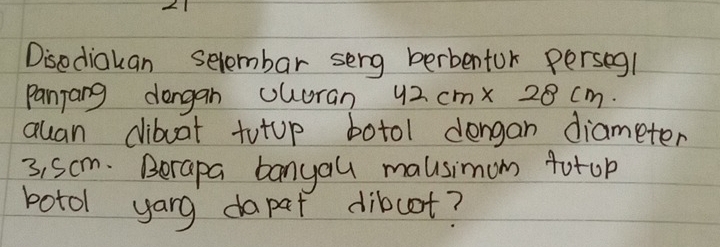 21
Disediakan selembar seng berbentuk persegi
panjang dengan ukuran 42 cm x 28 cm.
akan dibuat tutup botol dengan diameter
3,5 cm. Berapa banyak maksimum tutup
botol yang dapat dibuat?